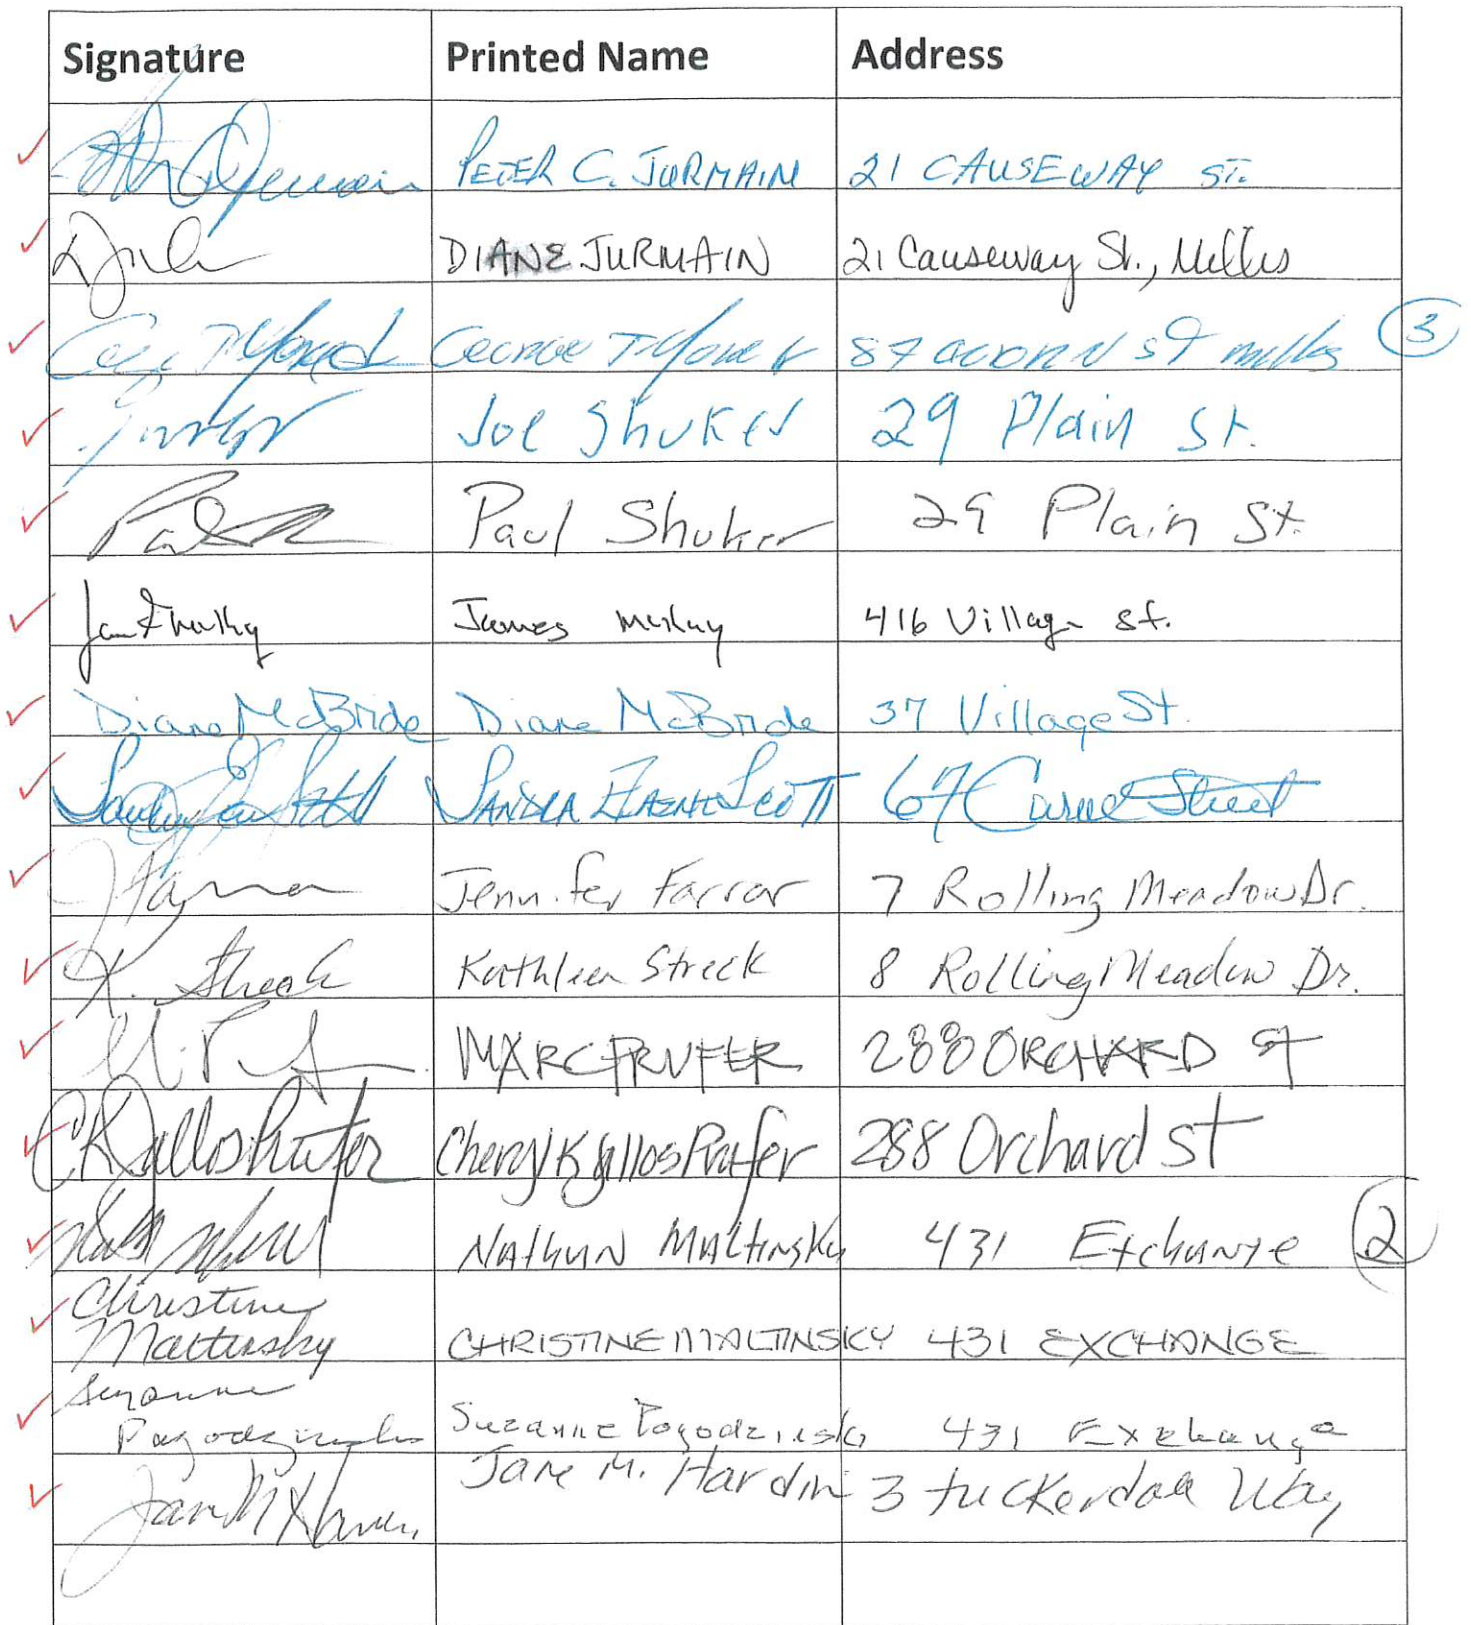 Signature Printed Name Address
PETER C. JURMAIN 21 CAUSEWAY ST.
DIANE JURMAIN 21 Causeway St., Millis
George T Yered 87 acorn st millis 3
Joe Shuker 29 Plain St.
Paul Shuker 29 Plain St.
James McKay 416 Village St.
Diane McBride Diane McBride 37 Village St.
SANDRA SCOTT 67 Street
Jennifer Farrar 7 Rolling Meadow Dr.
K. Streck Kathleen Streck 8 Rolling Meadow Dr.
MARC PRUFER 288 ORCHARD St
CKyllosPrufer Cheryl Kyllos Prufer 288 Orchard St
Nathan Maltinsky 431 Exchange 2
Christine
Maltinsky CHRISTINE MALTINSKY 431 EXCHANGE
Suzanne
Pogodzinski Suzanne Pogodzinski 431 Exchange
Jane M. Hardin 3 tuckerdale Way